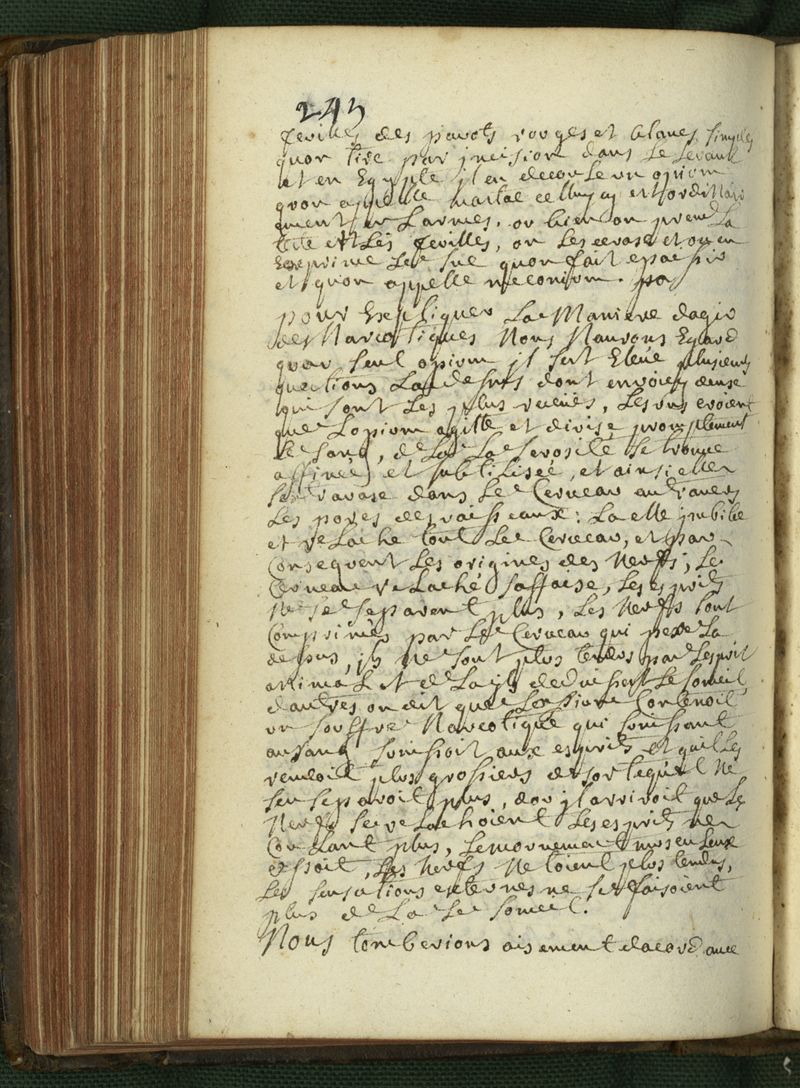 243
feuilles des pavots rouges et blancs simples
quon tire par jncision dans le Levant
et en Egypte jl en decoule un opium
quon appelle
en Larmes, ou bien on prend La
tete et Les feuilles, on Les ecrase et on en
Exprime Le suc quon fait epaissir
et quon appelle meconium.
pour Expliquer La Maniere dagir
des Narcotiques Nous Naurons Egard
quau seul opium jl sest Eleué plusieurs
questions La desus dont en voicy deux
qui sont Les plus receues, Les uns croient
que Lopium agitte et divise promptement
Le sang, de La La serosité se trouue
affinée et subtilisée, et ainsi elle
sextravase dans Le Cerveau au travers
Les pores des vaisseaux: La elle jmbibe
et relache tout Le Cerveau, et par
Consequent Les origines des Nerfs; Le
Cerveau relaché saffaise, Les esprits
Ne se separent plus, Les Nerfs sont
Comprimés par Le Cerveau qui pese La
desus, jls Ne sont plus tendus par Lesprit
animal et de La jls deduisent Le someil
dautres on dit que Lopium Contenoit
un souffre Narcotique qui sunissant
au sang sunissoit aux esprits et quil Les
rendoit plus grossiers de sorte quil Ne
sen separoit plus, dou jl arrivoit que Les
Nerfs se relachoient Les esprits ne
Coulant plus, Le mouvement musculeux
cessoit, Les Nerfs Netoient plus tendus,
Les sensations externes ne se faisoient
plus de La Le someil.
Nous tomberions aisement dacord avec